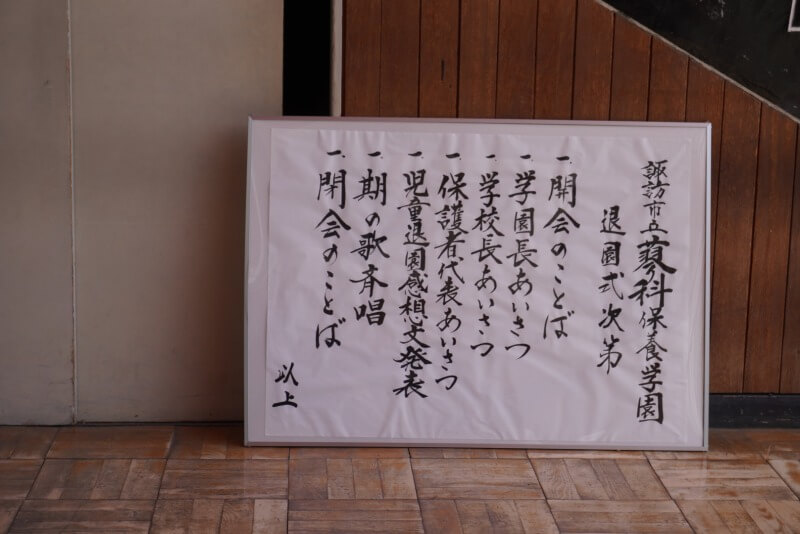 諏訪市立蓼科保養学園
退園式次第
一、開会のことば
一、学園長あいさつ
一、学校長あいさつ
一、保護者代表あいさつ
一、児童退園感想文発表
一、期の歌斉唱
一、閉会のことば
以上